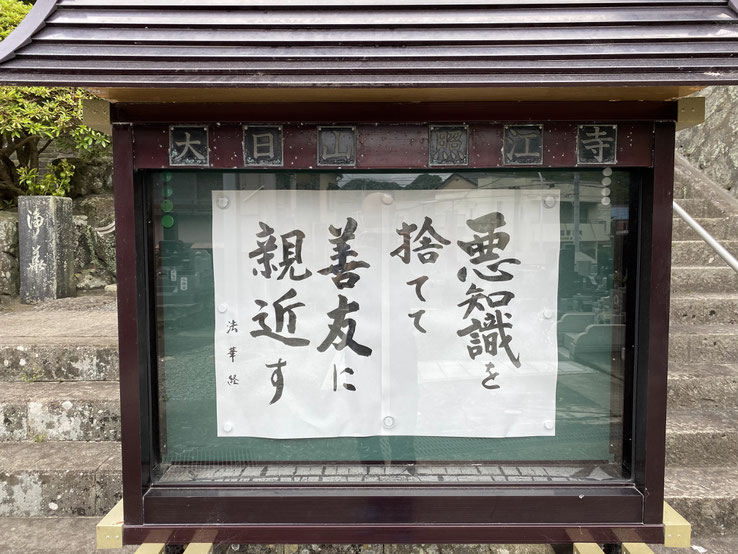 大日山 照江寺
悪知識を
捨てて
善友に
親近す
法華経